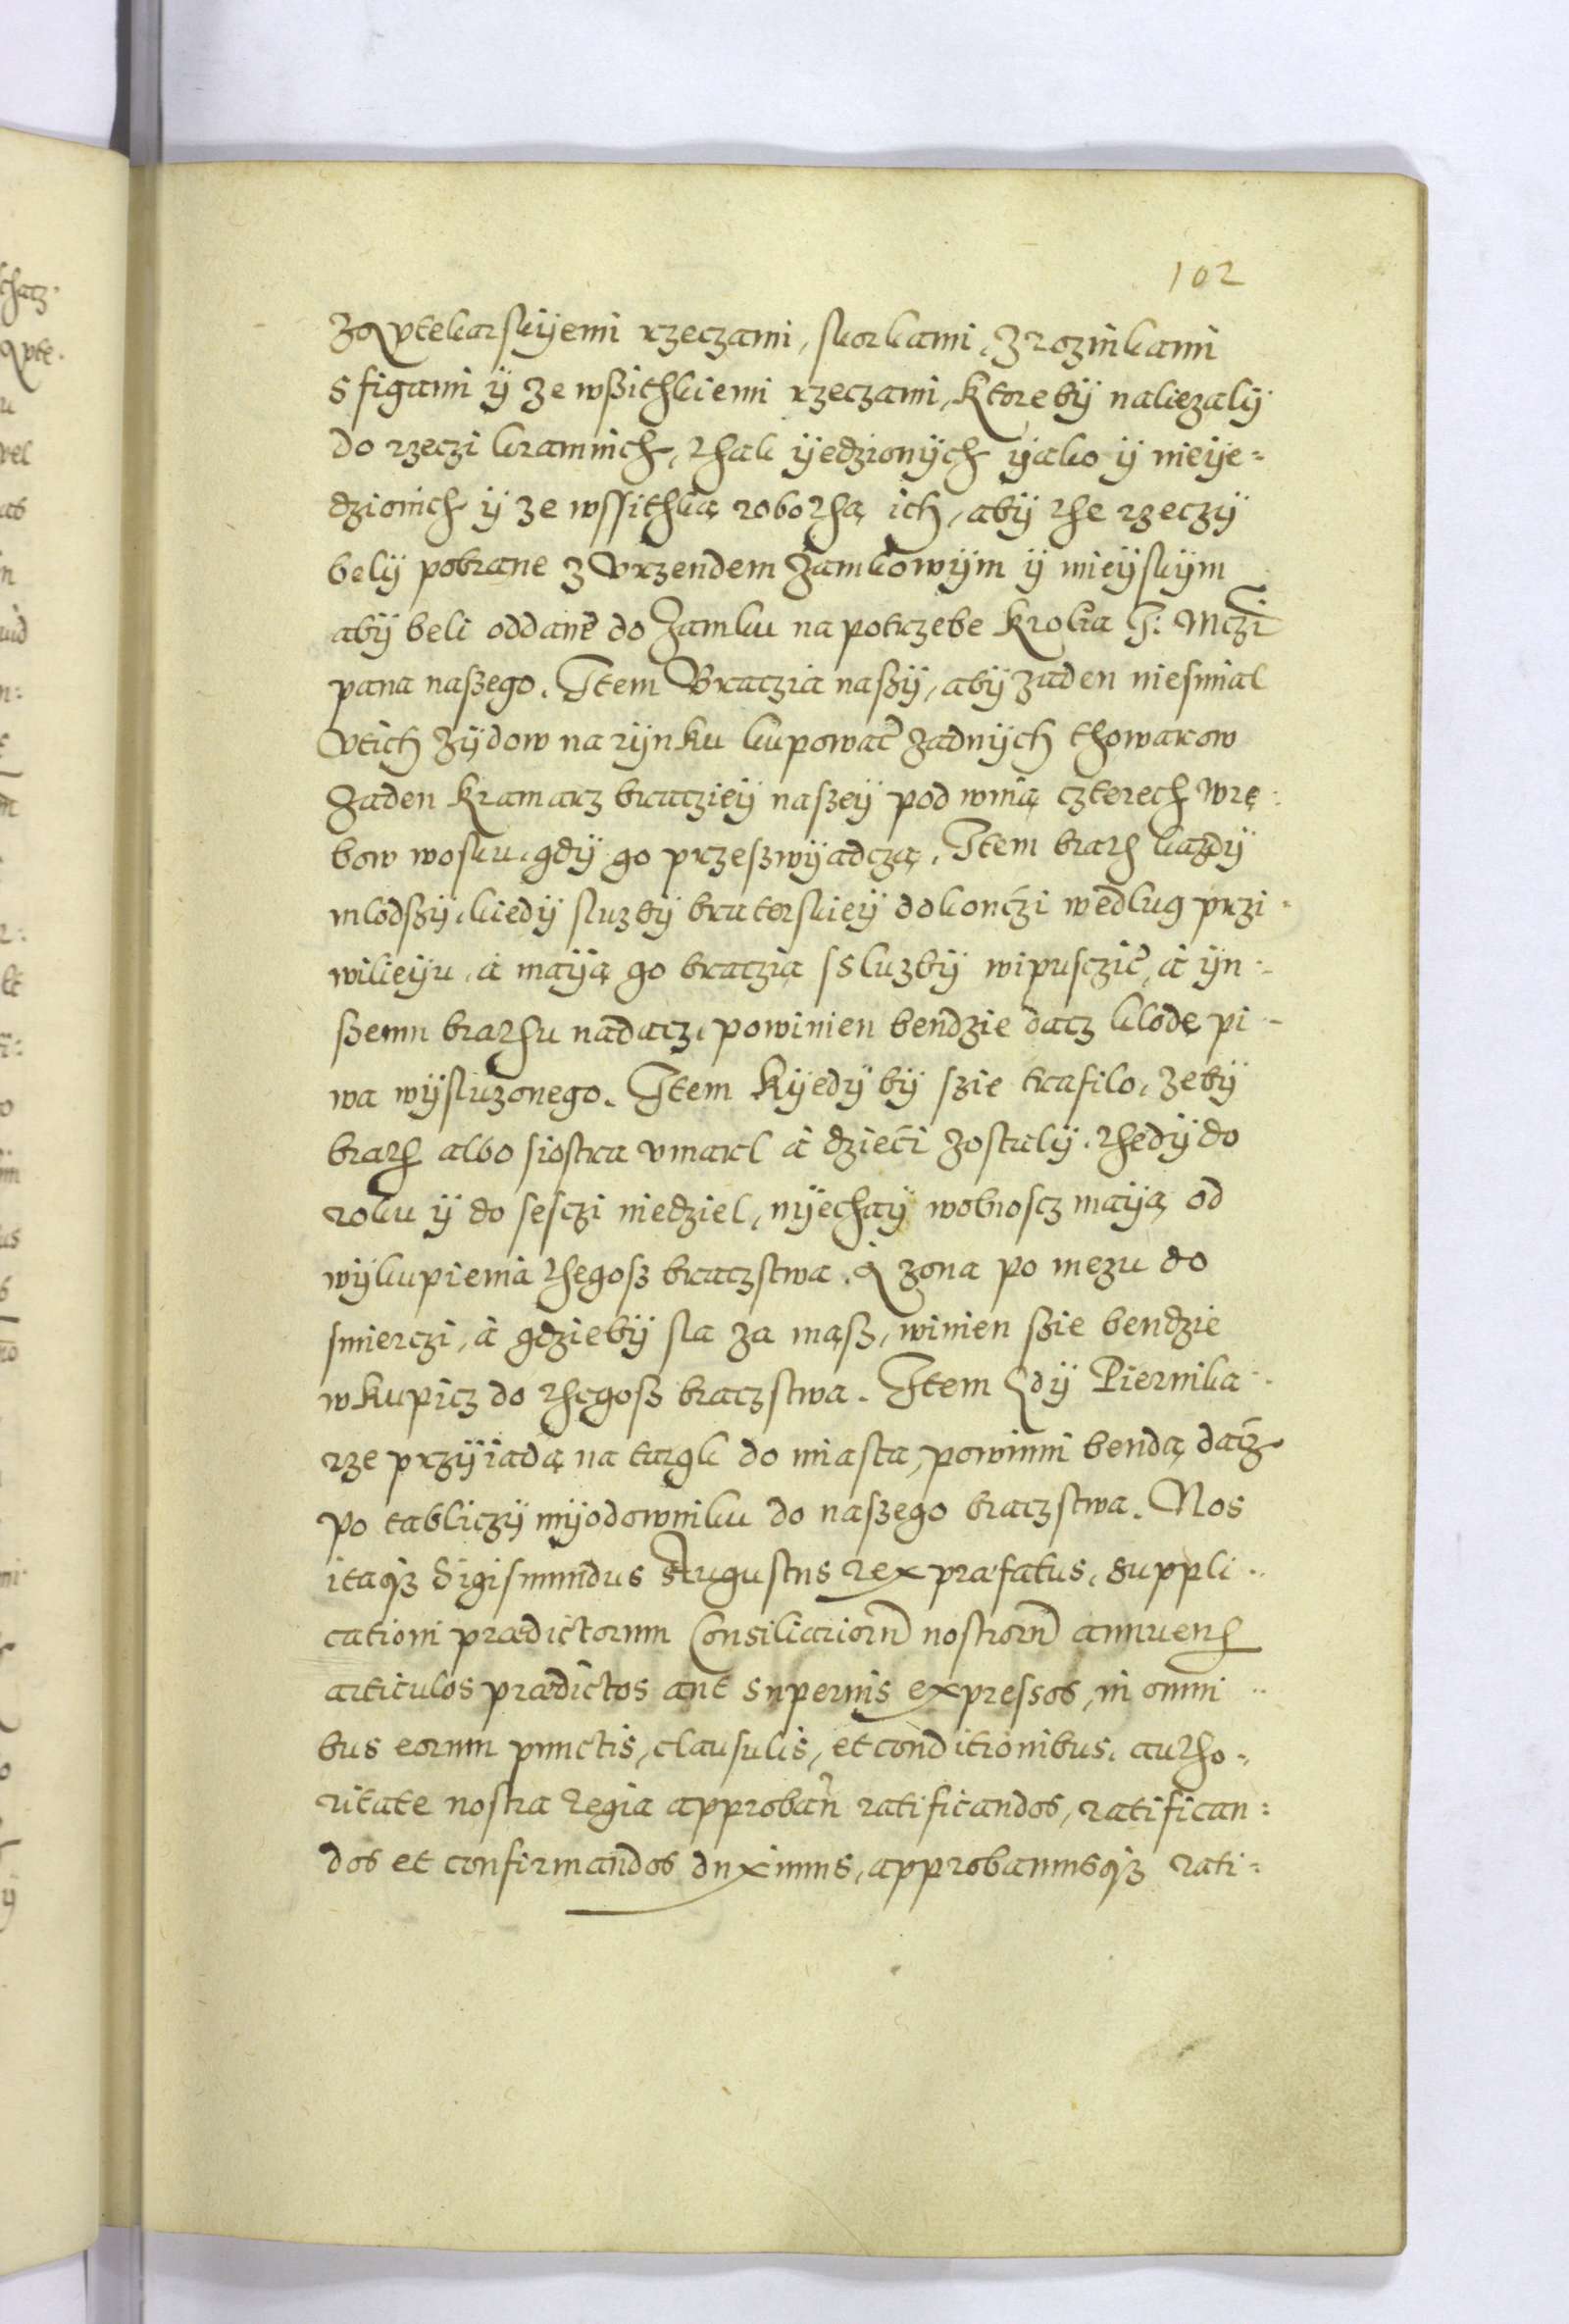 102
z Aptekarskÿemi rzeczami, skorkami, z rozinkami
s figami ÿ ze wßithkiemi rzeczami, ktorebÿ naliezalÿ
do rzeczi kramnich, thak ÿedzionÿch ÿako ÿ nieÿe=
dzionich ÿ ze wssithką robothą ich, abÿ the rzeczÿ
belÿ pobrane z Vrzendem zamkowÿm ÿ mieÿskÿm
abÿ beli oddane do Zamku na potrzebe Krolia J: Mczi
pana naszego. Item Braczia naßÿ, abÿ zaden niesmial
Vtich zÿdow na rÿnku kupowač zadnÿch thowarow
Zaden Kramarz bracziëÿ naszeÿ pod winą czterech wrę:
bow wosku, gdÿ go przeszwÿadczą. Item brath kazdÿ
mlodszÿ, kiedÿ sluzbÿ braterskieÿ dokonczi według przi=
wilieÿu, à maÿą go braczia s sluzbÿ wipusczič, à ÿn=
szemu brathu nadacz, powinien bendzie dacz klodę pi-
wa wÿsluzonego. Item Kÿedÿ bÿ szie trafilo, zebÿ
brath albo siostra vmarl à dzieci zostalÿ, thedÿ do
roku ÿ do sesczi niedziel, nÿechaÿ wolnoscz maÿą od
wÿkupienia thegosz braczstwa. A zona po mezu do
smierczi, à gdziebÿ sla za mąsz, winien szie bendzie
wkupicz do thegosz braczstwa. Item Gdÿ Piernika-
rze przÿiadą na targk do miasta, powinni bendą dacz
po tabliczÿ mÿodowniku do naszego braczstwa. Nos
itaqz Sigismundus Augustus rex præfatus, suppli-
cationi prædictorum Consiliariorū nostrorū annuens
articulos prædictos ante superius expressos, in omni-
bus eorum punctis, clausulis, et conditionibus, autho-
ritate nostra Regia approbañ ratificandos, ratifican=
dos et confirmandos duximus, approbamusqz rati=